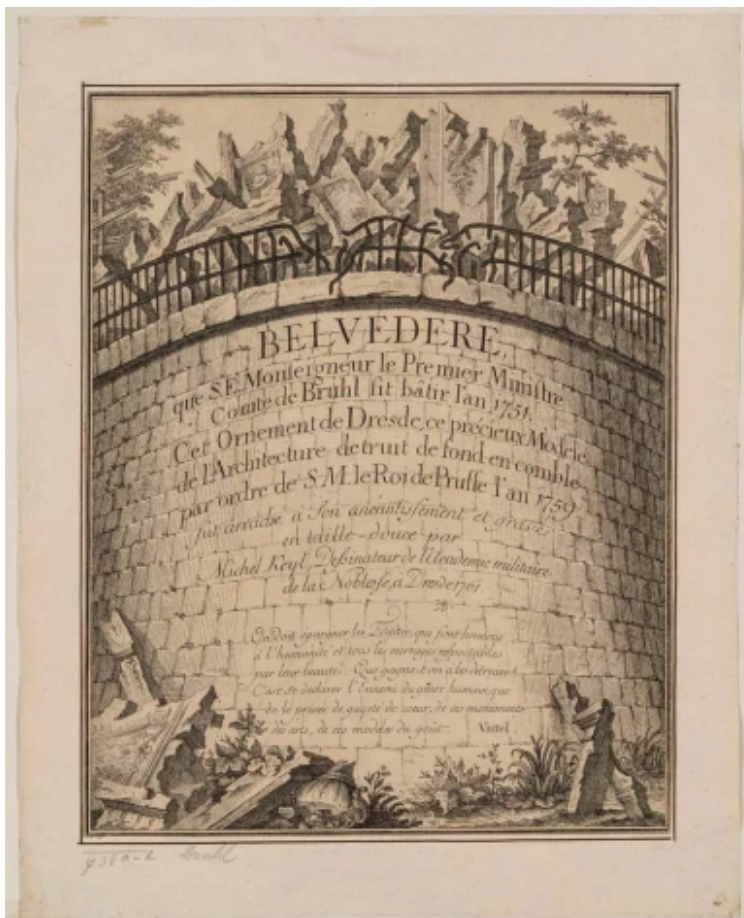 BELVEDERE,
que S.E. Monseigneur le Premier Ministre
Comte de Bruhl fit bâtir l'an 1751.
Cet Ornement de Dresde, ce précieux Modele
de l'Architecture detruit de fond en comble
par ordre de S.M. le Roi de Prusse l'an 1759
fut arraché à son anéantissement et gravé
en taille-douce par
Michel Keyl, Dessinateur de l'Academie militaire
de la Noblesse, à Dresde 1761.
On doit épargner les Edifices, qui font honneur
à l'humanité et tous les ouvrages respectables
par leur beauté. Que gagne-t-on à les détruire?
C'est se declarer l'Ennemi du genre humain, que
de le priver de gayeté de cœur, de ces monuments
des arts, de ces modeles du goût. Vattel.